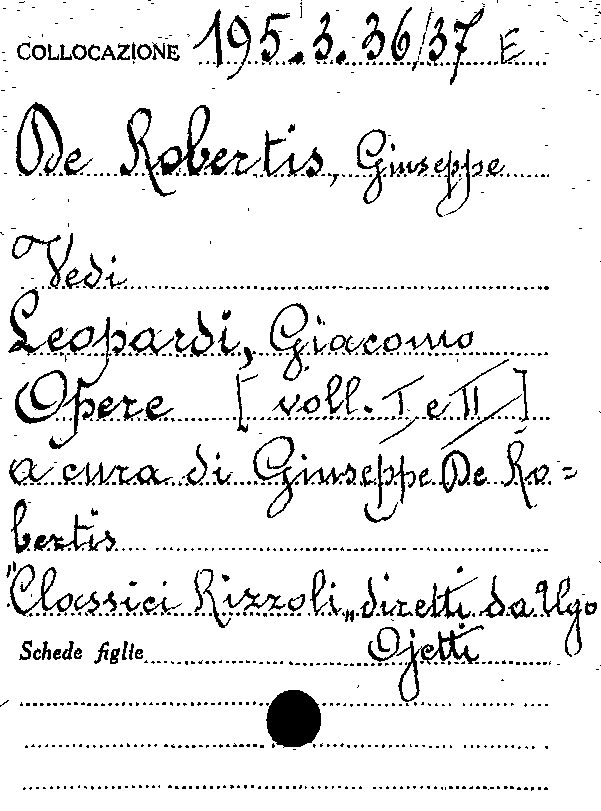 COLLOCAZIONE 195.3.36/37 E
De Robertis, Giuseppe
Vedi
Leopardi, Giacomo
Opere [voll. I e II]
a cura di Giuseppe De Ro=
bertis
"Classici Rizzoli„ diretti da Ugo
Ojetti
Schede figlie